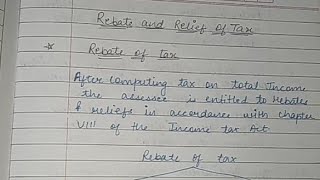 Rebate and Relief of Tax
Rebate of tax
After computing tax on total Income
the assessee is entitled to rebates
& reliefs in accordance with chapter
VIII of the Income tax Act.
Rebate of tax